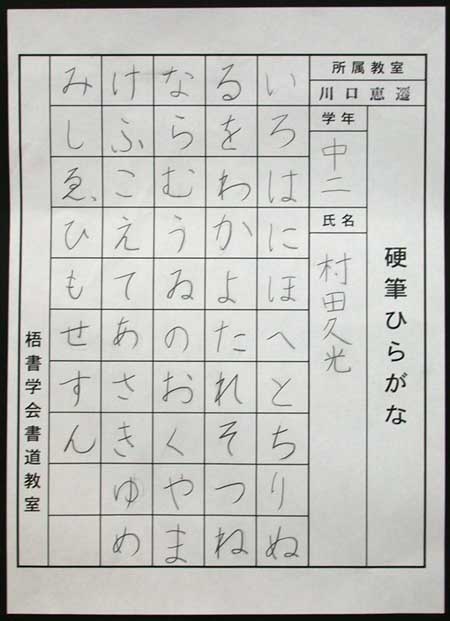 硬筆ひらがな
所属教室
川口
学年
中二
氏名
村田久光
いろはにほへとちりぬ
るをわかよたれそつね
ならむうゐのおくやま
けふこえてあさきゆめ
みしゑひもせすん
梧書学会書道教室